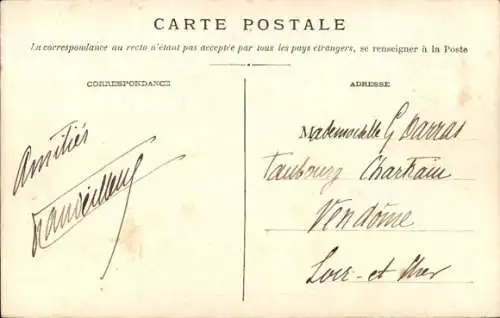 CARTE POSTALE
La correspondance au recto n'étant pas acceptée par tous les pays étrangers, se renseigner à la Poste
CORRESPONDANCE
Amitiés
ADRESSE
Mademoiselle G Darras
Faubourg Chartrain
Vendôme
Loir-et-Cher